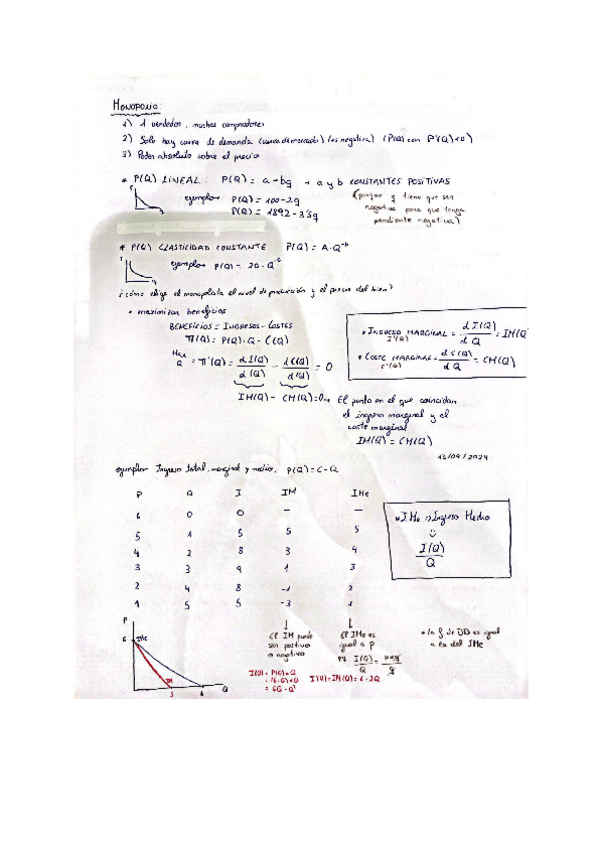 MONOPOLIO:
1) 1 vendedor, muchos compradores
2) Solo hay curva de demanda (curva de mercado) (es negativa) (P(Q) con P'(Q)<0)
3) Poder absoluto sobre el precio
* P(Q) LINEAL: P(Q) = a-bq → a y b CONSTANTES POSITIVAS
(porque q tiene que ser
negativa para que tenga
pendiente negativa)
ejemplo P(Q) = 100-2q
P(Q) = 1892-3'3q
* P(Q) ELASTICIDAD CONSTANTE P(Q) = A·Q⁻ᵇ
ejemplo P(Q) = 20·Q
¿cómo elige el monopolista el nivel de producción y el precio del bien?
• maximizar beneficios
BENEFICIOS = INGRESOS - COSTES
Π(Q) = P(Q)·Q - C(Q)
Max Q = Π'(Q) = d I(Q) / d(Q) - d C(Q) / d(Q) = 0
IM(Q) - CM(Q) = 0 → El punto en el que coincidan
el ingreso marginal y el
coste marginal
IM(Q) = CM(Q)
• INGRESO MARGINAL = d I(Q) / d Q = IM(Q
I'(Q)
• COSTE MARGINAL = d C(Q) / d Q = CM(Q)
C'(Q)
13/09/2024
ejemplo Ingreso total, marginal y medio, P(Q) = 6-Q
P Q I IM IMe
6 0 0 — —
5 1 5 5 5
4 2 8 3 4
3 3 9 1 3
2 4 8 -1 2
1 5 5 -3 1
* IMe => Ingreso Medio
I(Q) / Q
El IM puede
ser positivo
o negativo
El IMe es
igual a P
I(Q) / Q = p×q / q
• la de DD es igual
a la del IMe
P
6 IMe
IM
3 6 Q
I(Q) = P(Q)×Q
= (6-Q)×Q
= 6Q-Q²
I'(Q) = IM(Q) = 6-2Q